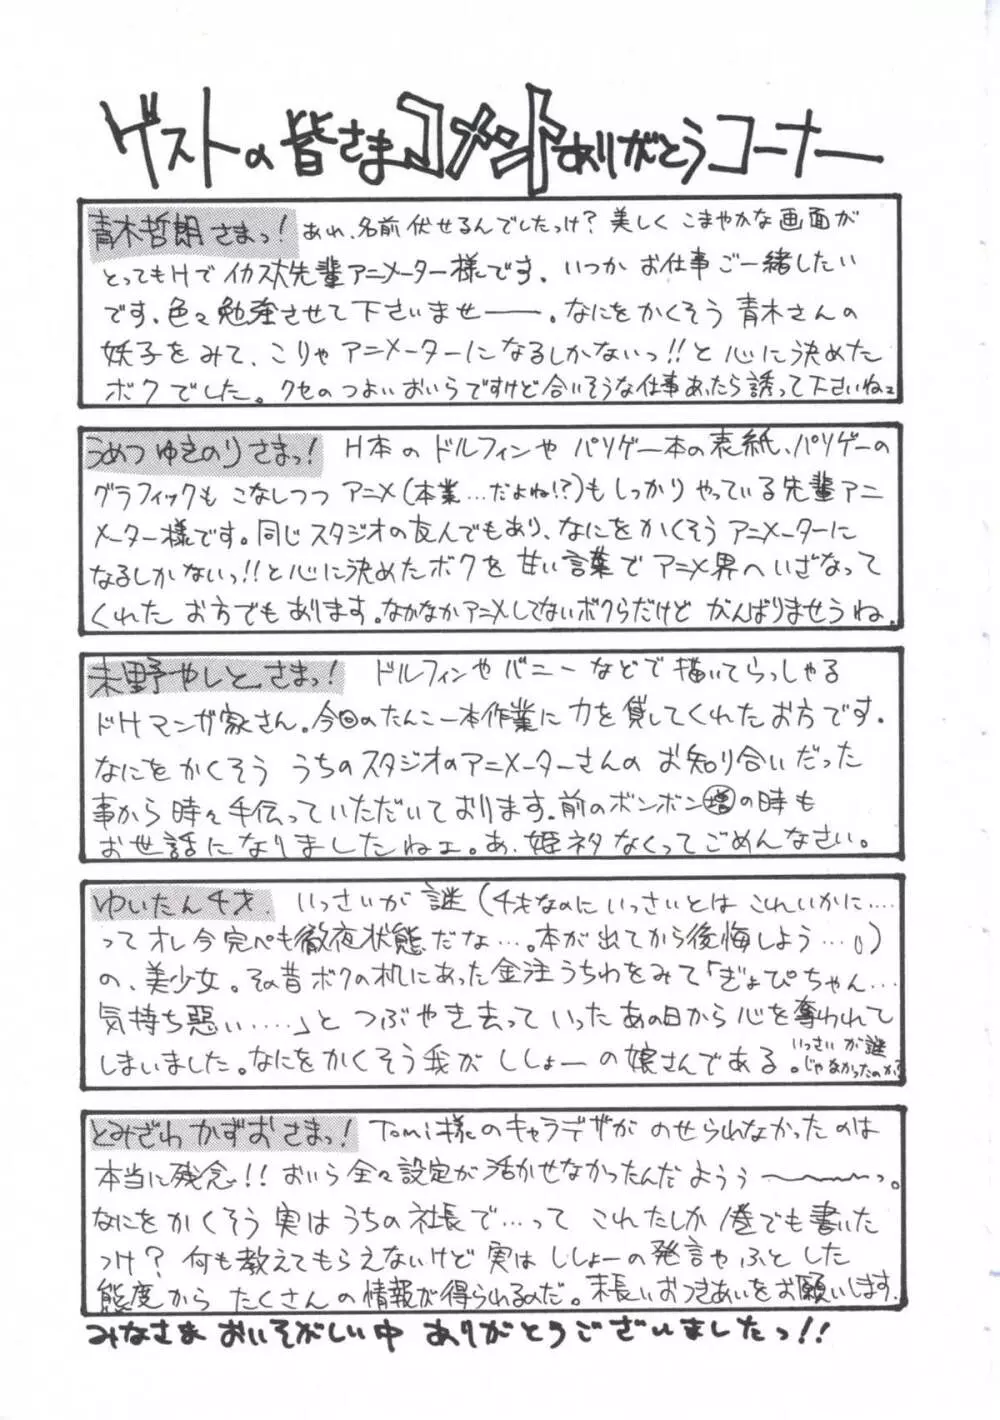 ゲストの皆さまコメントありがとうコーナー
青木哲朗さまっ! あれ、名前伏せるんでしたっけ?美しくこまやかな画面が
とってもHでイカス大先輩アニメーター様です、いつかお仕事ご一緒したい
です、色々勉強させて下さいませ――。なにをかくそう青木さんの
妖子をみて、こりゃアニメーターになるしかないっ!!と心に決めた
ボクでした。クセのつよいおいらですけど合いそうな仕事あったら誘って下さいねェ
うめつゆきのりさまっ! H本のドルフィンやパソゲー本の表紙、パソゲーの
グラフィックもこなしつつアニメ(本業…だよね!?)もしっかりやっている先輩アニ
メーター様です。同じスタジオの友人でもあり、なにをかくそうアニメーターに
なるしかないっ!!と心に決めたボクを甘い言葉でアニメ界へいざなって
くれたお方でもあります。なかなかアニメしてないボクらだけどがんばりませうね。
未野やしとさまっ! ドルフィンやバニーなどで描いてらっしゃる
ドHマンガ家さん。今回のたんこー本作業に力を貸してくれたお方です。
なにをかくそううちのスタジオのアニメーターさんのお知り合いだった
事から時々手伝っていただいております。前のボンボン増の時も
お世話になりましたねェ。あ、姫ネタなくってごめんなさい。
ゆいたん千才. いっさいが謎(千才なのにいっさいとはこれいかに……
ってオレ今完ペキ徹夜状態だな…。本が出てから後悔しよう…。)
の、美少女。その昔ボクの机にあった金注うちわをみて「ぎょぴちゃん…
気持ち悪い……」とつぶやき去っていったあの日から心を奪われて
しまいました。なにをかくそう我がししょーの娘さんである。いっさいが謎
じゃなかったのか?
とみざわかずおさまっ! Tomi様のキャラデザがのせられなかったのは
本当に残念!!おいら全々設定が活かせなかったんだようぅ〜〜〜っ。
なにをかくそう実はうちの社長で…ってこれたしか1巻でも書いた
っけ?何も教えてもらえないけど実はししょーの発言やふとした
態度からたくさんの情報が得られるのだ。末長いおつきあいをお願いします.
みなさまおいそがしい中ありがとうございましたっ!!